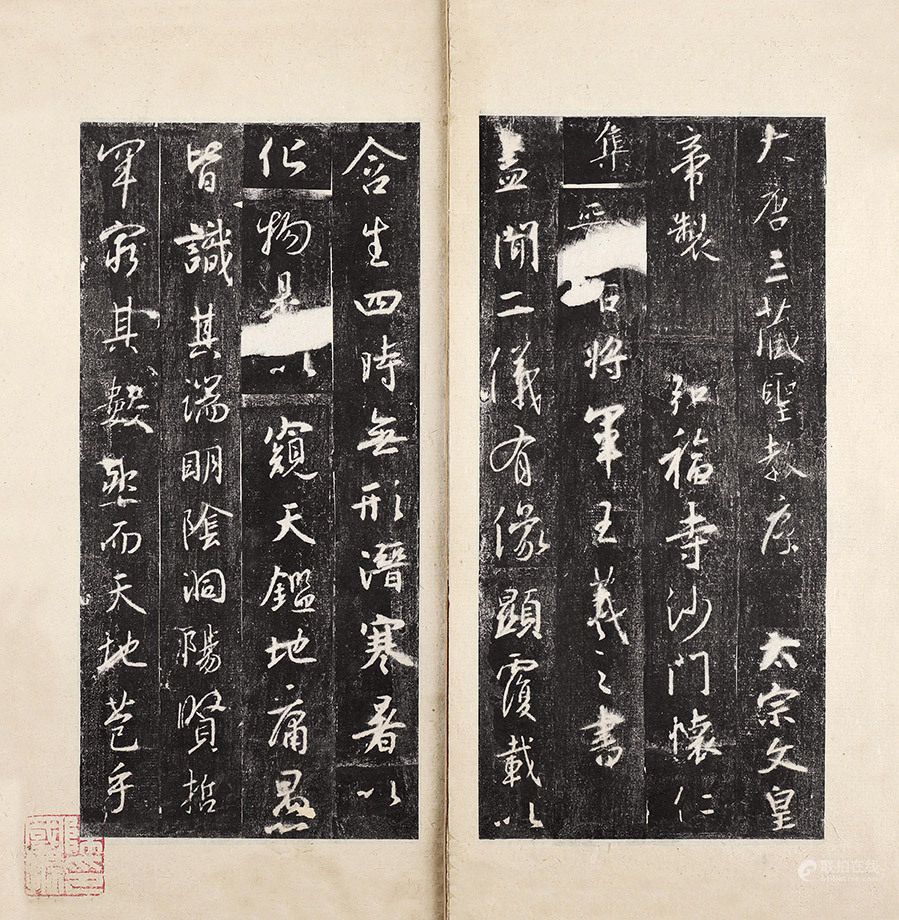 大唐三藏聖教序 太宗文皇
帝製 弘福寺沙門懷仁
集晉右將軍王羲之書
盖聞二儀有像顯覆載以
含生四時無形潛寒暑以
化物是以窺天鑑地庸愚
皆識其端明陰洞陽賢哲
罕窮其數然而天地苞乎